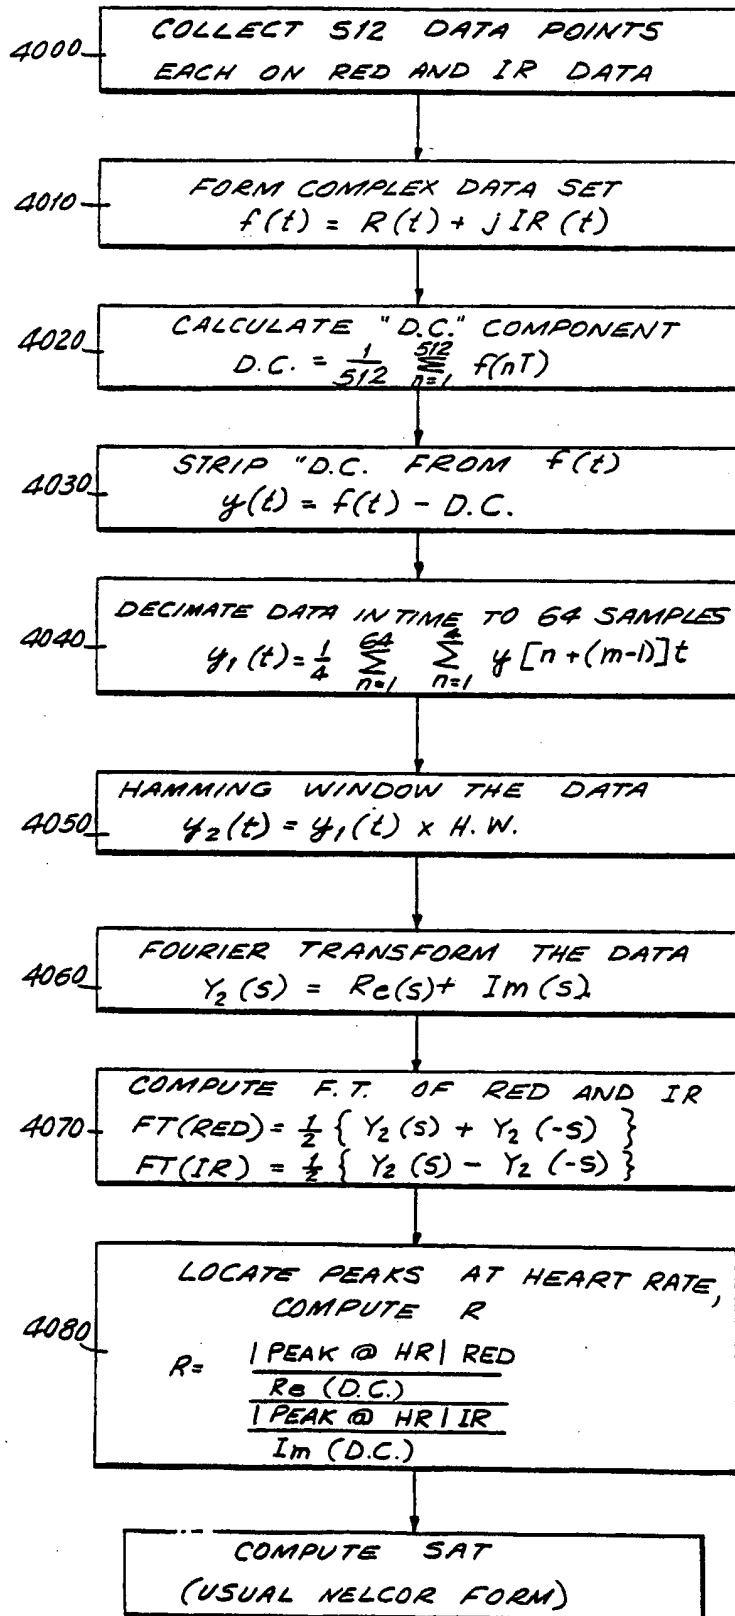 4000
COLLECT 512 DATA POINTS
EACH ON RED AND IR DATA
4010
FORM COMPLEX DATA SET
f(t) = R(t) + j IR (t)
4020
CALCULATE "D.C." COMPONENT
D.C. = 1/512 512 Σ n=1 f(nT)
4030
STRIP "D.C. FROM f(t)
y(t) = f(t) - D.C.
4040
DECIMATE DATA IN TIME TO 64 SAMPLES
y₁(t) = 1/4 64 Σ n=1 4 Σ n=1 y [n + (m-1)] t
4050
HAMMING WINDOW THE DATA
y₂(t) = y₁(t) x H.W.
4060
FOURIER TRANSFORM THE DATA
Y₂(s) = Re(s) + Im(s)
4070
COMPUTE F.T. OF RED AND IR
FT(RED) = 1/2 { Y₂(s) + Y₂(-s) }
FT(IR) = 1/2 { Y₂(s) - Y₂(-s) }
4080
LOCATE PEAKS AT HEART RATE,
COMPUTE R
R=
|PEAK @ HR| RED
Re (D.C.)
|PEAK @ HR| IR
Im (D.C.)
COMPUTE SAT
(USUAL NELCOR FORM)